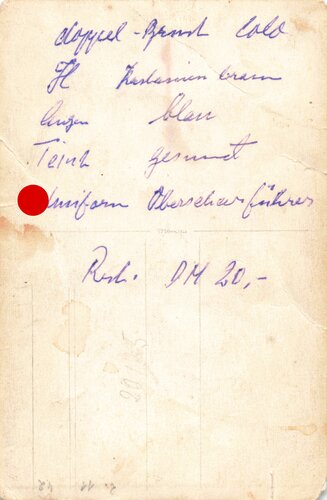 doppel-Brust Colo
H Kastanienbraun
Augen blau
Teint gesund
Uniform Oberscharführer
Rest. DM 20,-
2. 11. 42